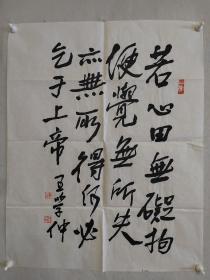 若心田無礙拘
便覺無所失
亦無所得何必
乞于上帝 王学仲